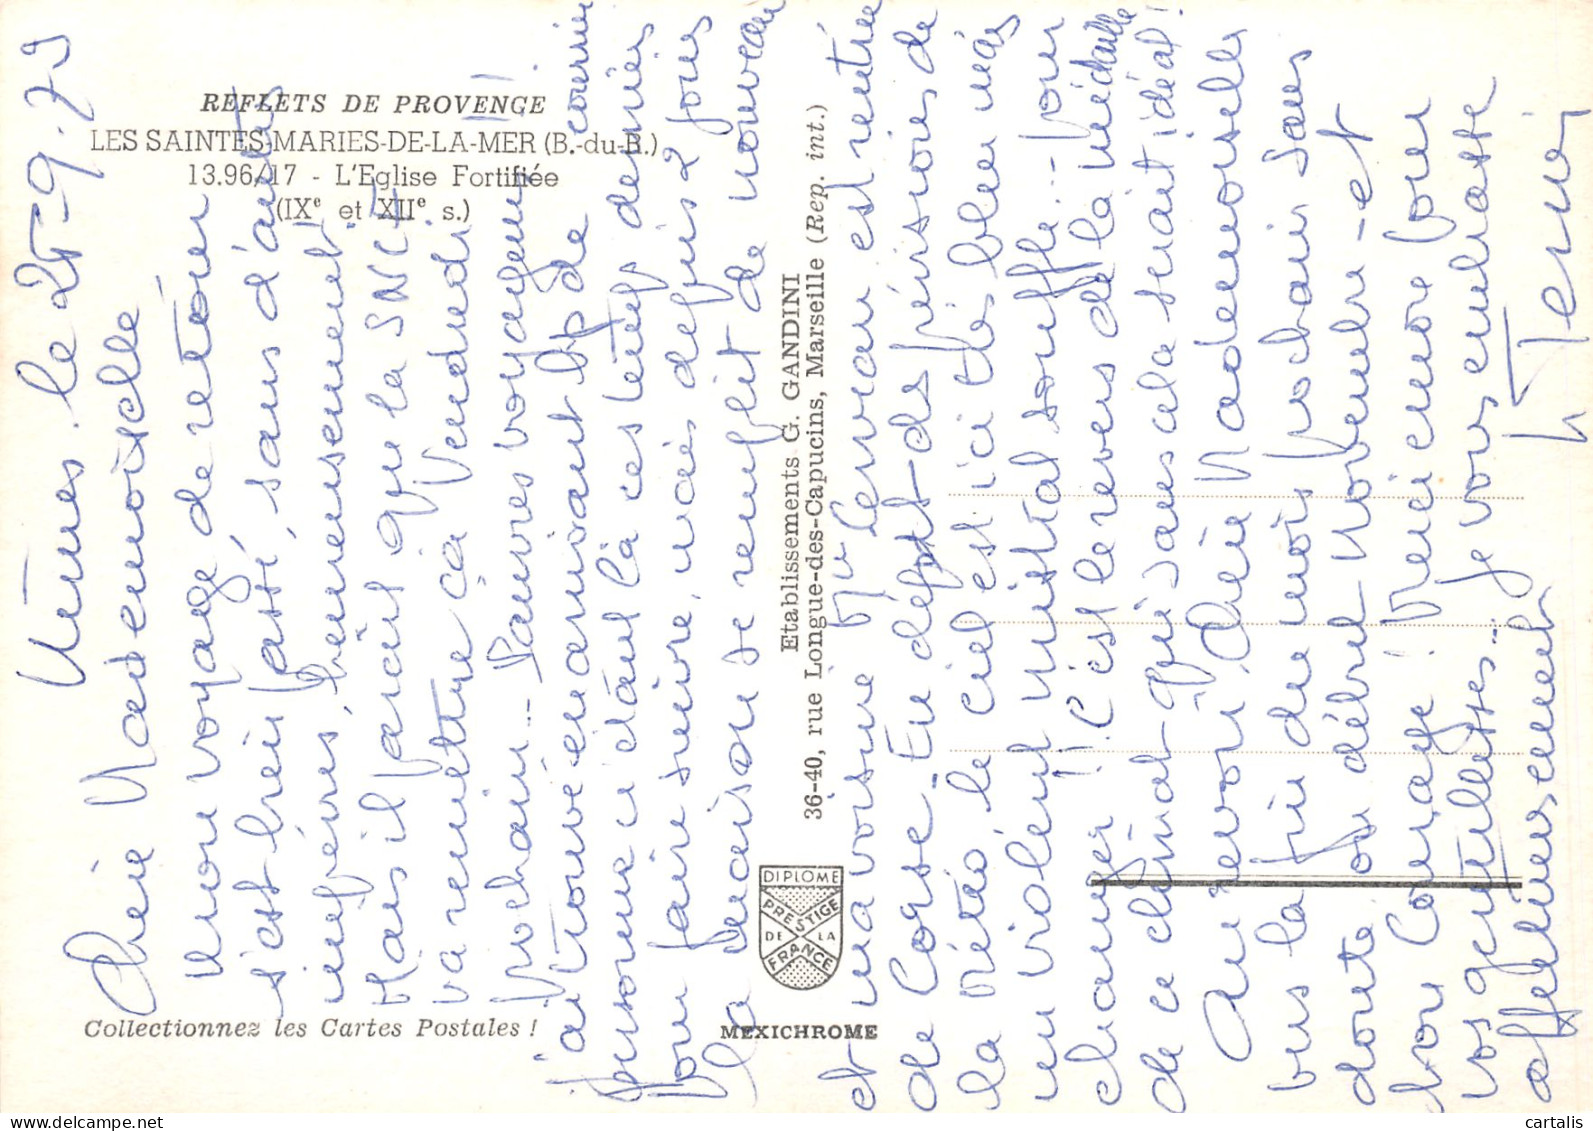 REFLETS DE PROVENCE
LES SAINTES-MARIES-DE-LA-MER (B.-du-R.)
13.96/17 - L'Eglise Fortifiée
(IXe et XIIe s.)
Nîmes. le 25-9-79
Chère Mademoiselle
Mon voyage de retour
s'est bien passé, sans d'autres
imprévus, heureusement
Mais il paraît que la SNCF
va remettre ça Vendredi
prochain... Pauvres voyageurs !!!
j'ai trouvé en arrivant bp de courrier
personne n'étant là ces temps derniers
pour faire suivre, mais depuis 2 jours
la maison se remplit de nouveau
et ma voisine Mme est rentrée
de Corse. En dépit des prévisions de
la météo, le ciel est ici très bleu mais
un violent mistral souffle... Pour
changer ! C'est le revers de la médaille
de ce climat qui sans cela serait idéal !
Au revoir, Chère Mademoiselle
vers la fin du mois prochain sans
doute ou début Novembre - et
bon Courage ! Merci encore pour
vos gentillesses... je vous embrasse
affectueusement
Etablissements G. GANDINI
36-40, rue Longue-des-Capucins, Marseille (Rep. int.)
DIPLOME
PRESTIGE
DE LA
FRANCE
Collectionnez les Cartes Postales !
MEXICHROME
cartalis